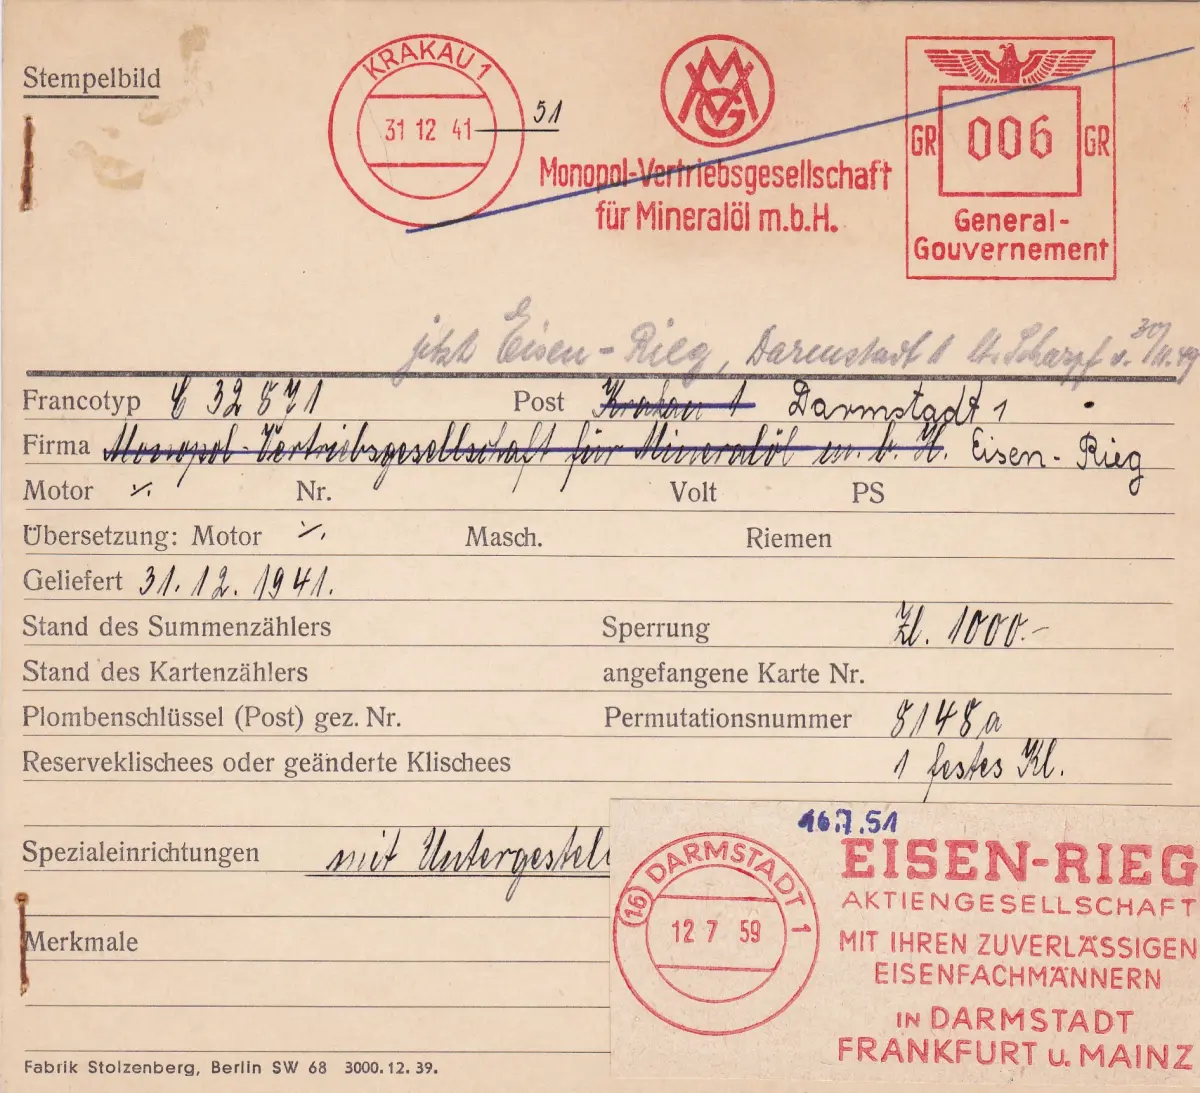 Stempelbild
KRAKAU 1
31 12 41
51
MVG
Monopol-Vertriebsgesellschaft
für Mineralöl m.b.H.
GR 006 GR
General-
Gouvernement
jetzt Eisen-Rieg, Darmstadt 1 lt. Scharpf v. 30/11.49
Francotyp C 32571 Post Krakau 1 Darmstadt 1
Firma Monopol-Vertriebsgesellschaft für Mineralöl m. b. H. Eisen-Rieg
Motor ./. Nr. Volt PS
Übersetzung: Motor ./. Masch. Riemen
Geliefert 31.12.1941.
Stand des Summenzählers Sperrung Zl. 1000.-
Stand des Kartenzählers angefangene Karte Nr.
Plombenschlüssel (Post) gez. Nr. Permutationsnummer 8148a
Reserveklischees oder geänderte Klischees 1 festes Kl.
Spezialeinrichtungen mit Untergestell
Merkmale
16.7.51
(16) DARMSTADT 1
12 7 59
EISEN-RIEG
AKTIENGESELLSCHAFT
MIT IHREN ZUVERLÄSSIGEN
EISENFACHMÄNNERN
IN DARMSTADT
FRANKFURT u. MAINZ
Fabrik Stolzenberg, Berlin SW 68 3000. 12. 39.